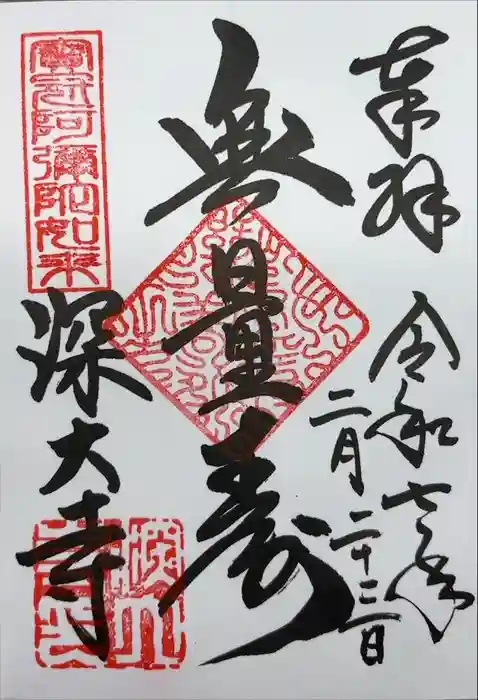 奉拝
令和七年
二月二十三日
無量寿
寶冠阿彌陀如来
深大寺